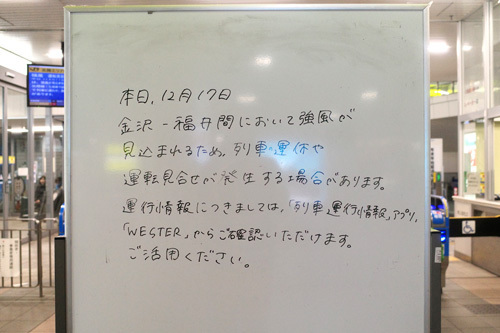 本日、12月17日
金沢-福井間において強風が
見込まれるため、列車の運休や
運転見合せが発生する場合があります。
運行情報につきましては、「列車運行情報」アプリ、
「WESTER」からご確認いただけます。
ご活用ください。